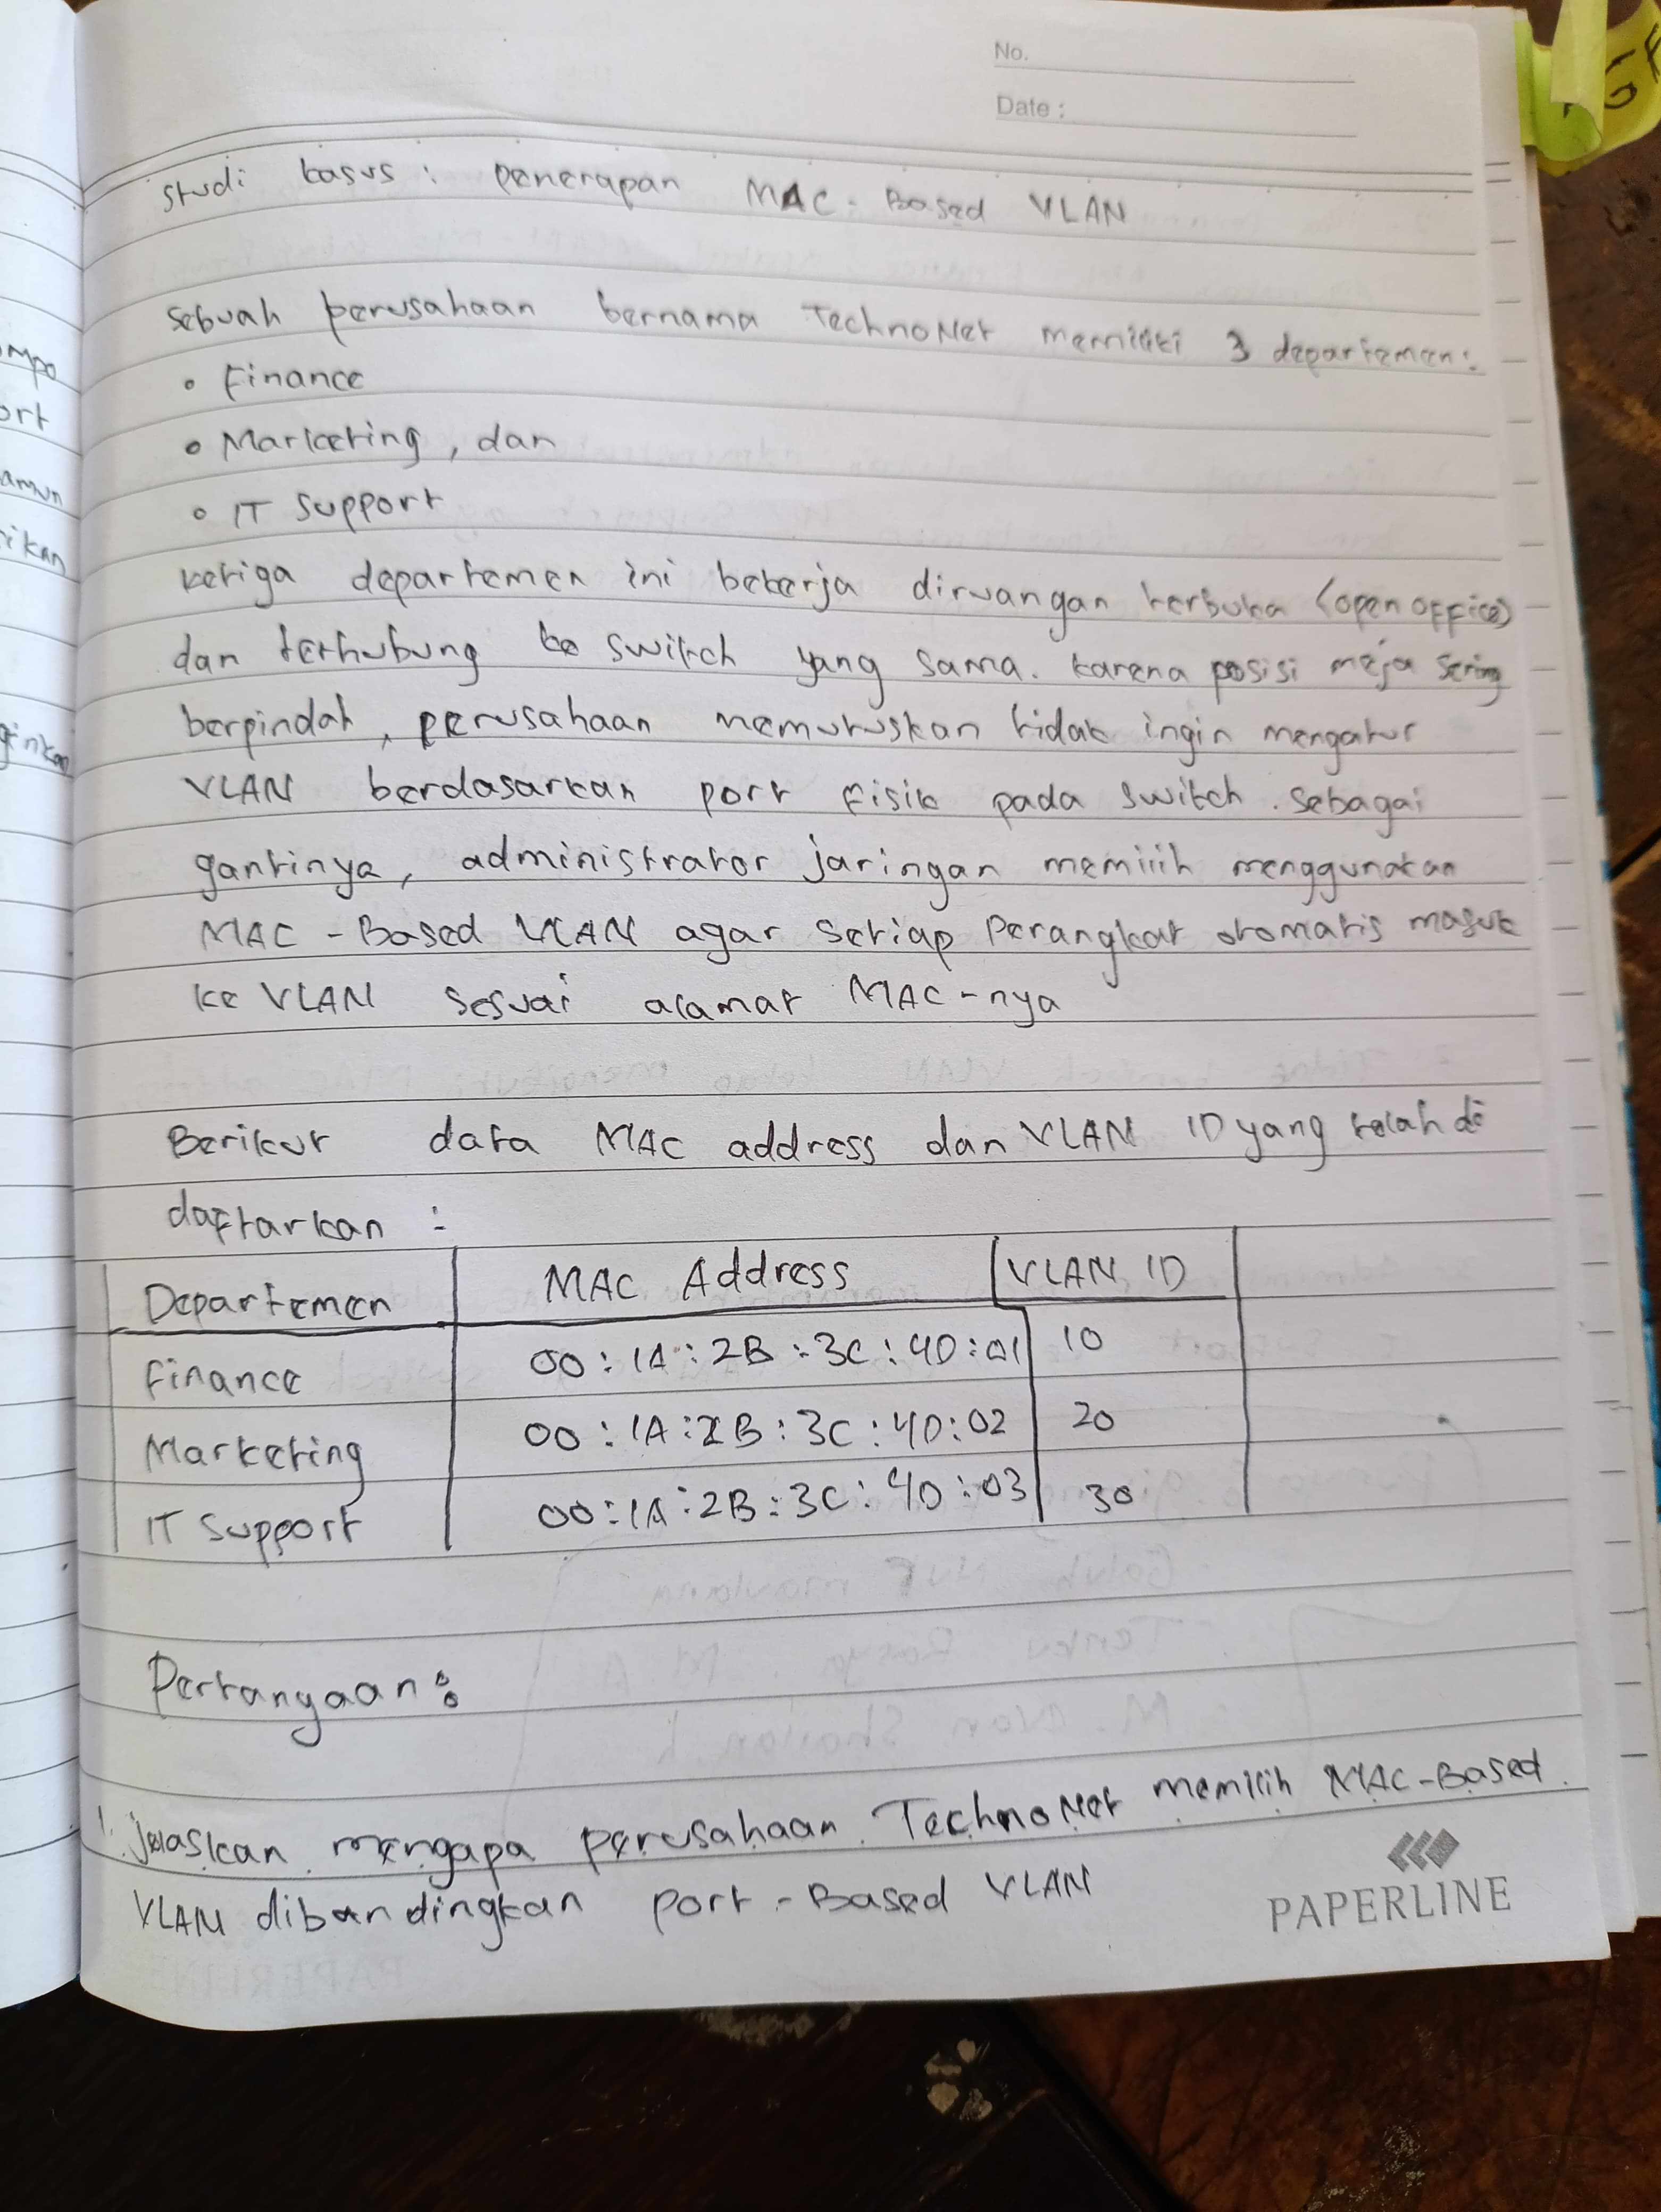 No.
Date :
Studi kasus : Penerapan MAC-Based VLAN
Sebuah perusahaan bernama TechnoNet memiliki 3 departemen:
• Finance
• Marketing, dan
• IT Support
ketiga departemen ini bekerja diruangan terbuka (open office)
dan terhubung ke switch yang sama. karena posisi meja sering
berpindah, perusahaan memutuskan tidak ingin mengatur
VLAN berdasarkan port fisik pada switch. Sebagai
gantinya, administrator jaringan memilih menggunakan
MAC-Based VLAN agar setiap perangkat otomatis masuk
ke VLAN sesuai alamat MAC-nya
Berikut data MAC address dan VLAN ID yang telah di
daftarkan :
Departemen MAC Address VLAN ID
Finance 00:1A:2B:3C:4D:01 10
Marketing 00:1A:2B:3C:4D:02 20
IT Support 00:1A:2B:3C:4D:03 30
Pertanyaan :
1. jelaskan mengapa perusahaan TechnoNet memilih MAC-Based
VLAN dibandingkan port-Based VLAN
PAPERLINE
ort
amun
ikan